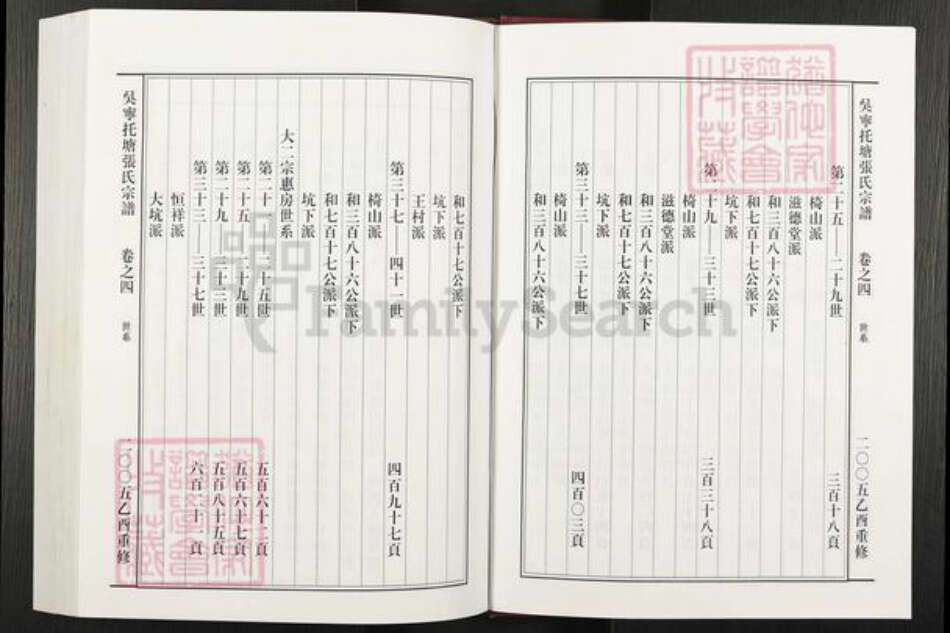 吳寧托塘張氏宗譜 卷之四 世系 二〇〇五乙酉重修
第二十五——二十九世 三百十八頁
椅山派
滋德堂派
和三百八十六公派下
和七百十七公派下
坑下派
第二十九——三十三世 三百三十八頁
椅山派
滋德堂派
和三百八十六公派下
和七百十七公派下
坑下派
第三十三——三十七世 四百〇三頁
椅山派
和三百八十六公派下
和七百十七公派下
坑下派
王村派
第三十七——四十一世 四百九十七頁
椅山派
和三百八十六公派下
和七百十七公派下
坑下派
大二宗惠房世系
第二十一——二十五世 五百六十二頁
第二十五——二十九世 五百六十七頁
第二十九——三十三世 五百八十五頁
第三十三——三十七世 六百二十一頁
恒祥派
大坑派
吳寧托塘張氏宗譜 卷之四 世系 二〇〇五乙酉重修
FamilySearch